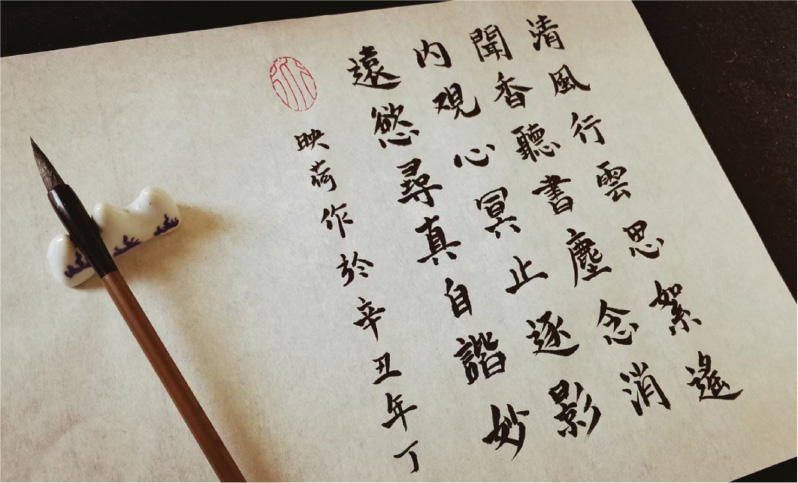 清風行雲思絮遙
聞香聽書塵念消
内观心冥止逐影
遠慾尋真自諧妙
映荷作於辛丑年丁